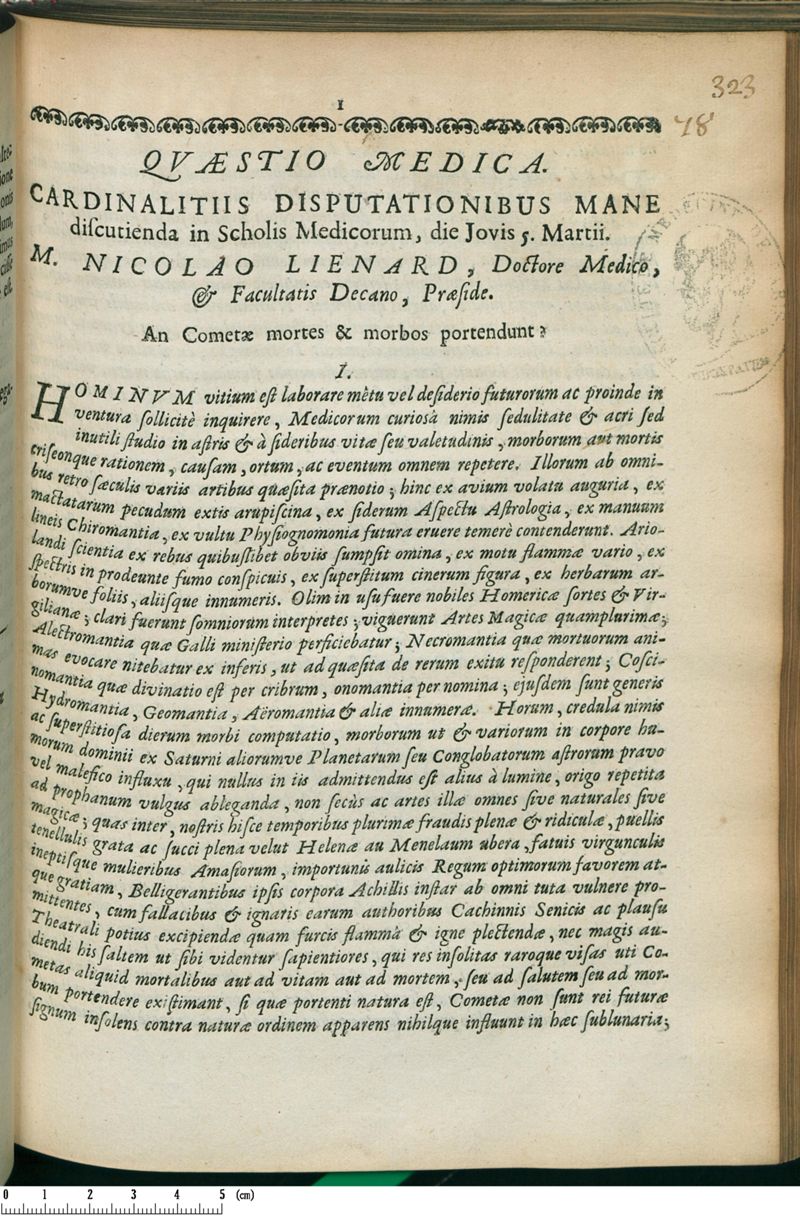 323
78
1
QVÆSTIO MEDICA.
CARDINALITIIS DISPUTATIONIBUS MANE
diſcutienda in Scholis Medicorum, die Jovis 5. Martii.
M. NICOLAO LIENARD, Doctore Medico,
& Facultatis Decano, Præſide.
An Cometæ mortes & morbos portendunt?
I.
HOMINVM vitium eſt laborare mètu vel deſiderio futurorum ac proinde in
ventura ſollicitè inquirere, Medicorum curiosà nimis ſedulitate & acri ſed
inutili ſtudio in aſtris & à ſideribus vitæ ſeu valetudinis, morborum aut mortis
criſeonque rationem, cauſam, ortum, ac eventum omnem repetere. Illorum ab omni-
bus retro ſæculis variis artibus quæſita prænotio; hinc ex avium volatu auguria, ex
mactatarum pecudum extis arupiſcina, ex ſiderum Aſpectu Aſtrologia, ex manuum
lineis Chiromantia, ex vultu Phyſiognomonia futura eruere temerè contenderunt. Ario-
landi ſcientia ex rebus quibuſlibet obviis ſumpſit omina, ex motu flammæ vario, ex
ſpectris in prodeunte fumo conſpicuis, ex ſuperſtitum cinerum figura, ex herbarum ar-
borumve foliis, aliiſque innumeris. Olim in uſu fuere nobiles Homericæ ſortes & Vir-
gilianæ; clari fuerunt ſomniorum interpretes; viguerunt Artes Magicæ quamplurimæ;
Alectromantia quæ Galli miniſterio perficiebatur; Necromantia quæ mortuorum ani-
mas evocare nitebatur ex inferis, ut ad quæſita de rerum exitu reſponderent; Coſci-
nomantia quæ divinatio eſt per cribrum, onomantia per nomina; ejuſdem ſunt generis
Hydromantia, Geomantia, Aëromantia & aliæ innumeræ. Horum, credula nimis
ac ſuperſtitioſa dierum morbi computatio, morborum ut & variorum in corpore hu-
morum dominii ex Saturni aliorumve Planetarum ſeu Conglobatorum aſtrorum pravo
vel malefico influxu, qui nullus in iis admittendus eſt alius à lumine, origo repetita
ad prophanum vulgus ableganda, non ſecùs ac artes illæ omnes ſive naturales ſive
magicæ; quas inter, noſtris hiſce temporibus plurimæ fraudis plenæ & ridiculæ, puellis
tenellulis grata ac ſucci plena velut Helenæ au Menelaum ubera, fatuis virgunculis
ineptiſque mulieribus Amaſiorum, importunis aulicis Regum optimorum favorem at-
que gratiam, Belligerantibus ipſis corpora Achillis inſtar ab omni tuta vulnere pro-
mittentes, cum fallacibus & ignaris earum authoribus Cachinnis Senicis ac plauſu
Theatrali potius excipiendæ quam furcis flammâ & igne plectendæ, nec magis au-
diendi his ſaltem ut ſibi videntur ſapientiores, qui res inſolitas raroque viſas uti Co-
metas aliquid mortalibus aut ad vitam aut ad mortem, ſeu ad ſalutem ſeu ad mor-
bum portendere exiſtimant, ſi quæ portenti natura eſt, Cometæ non ſunt rei futuræ
ſignum inſolens contra naturæ ordinem apparens nihilque influunt in hæc ſublunaria;
0 1 2 3 4 5 (cm)